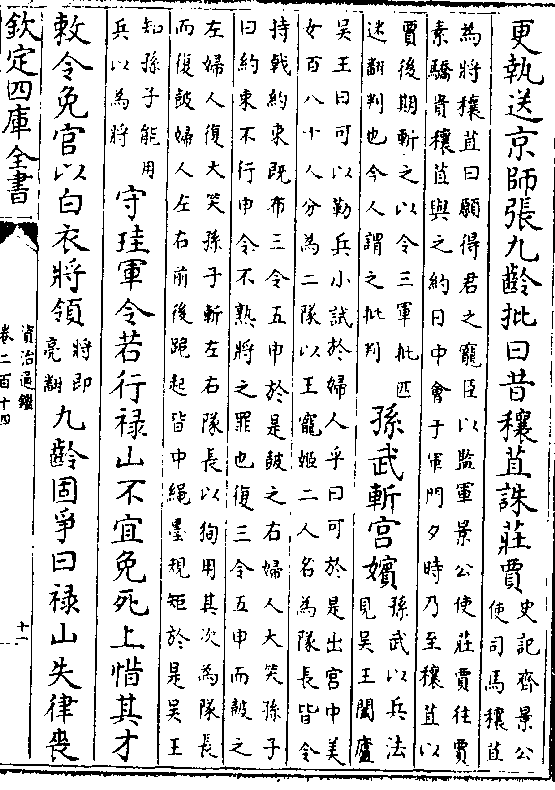 更執送京師張九齡批曰昔穰苴誅莊賈史記齊景公使司馬穰苴
為將穰苴曰願得君之寵臣以監軍景公使莊賈往賈
素驕貴穰苴與之約日中會于軍門夕時乃至穰苴以
賈後期斬之以令三軍批匹迷翻判也今人謂之批判孫武斬宫嬪孫武以兵法見吴王闔廬
吴王曰可以勒兵小試於婦人乎曰可於是出宫中美
女百八十人分為二隊以王寵姬二人名為隊長皆令
持戟約束既布三令五申於是鼓之右婦人大笑孫子
曰約束不行申令不熟將之罪也復三令五申而鼓之
左婦人復大笑孫子斬左右隊長以狥用其次為隊長
而復鼓婦人左右前後跪起皆中繩墨規矩於是吴王
知孫子能用兵以為將守珪軍令若行禄山不宜免死上惜其才
敕令免官以白衣將領將即亮翻九齡固爭曰禄山失律喪
欽定四庫全書
資治通鑑
卷二百十四
十一